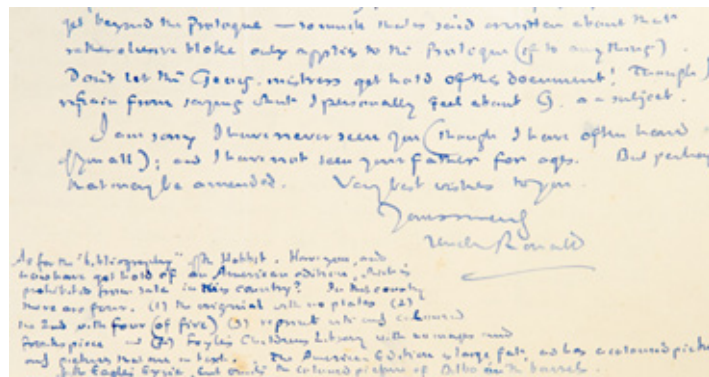 get beyond the Prologue — so much that is said or written about that
rather elusive bloke only applies to the Prologue (if to anything).
Don't let the Geog. mistress get hold of this document! Though I
refrain from saying what I personally feel about G. as a subject.
I am sorry I have never seen you (though I have often heard
of you all); and I have not seen your father for ages. But perhaps
that may be amended. Very best wishes to you.
Yours
Uncle Ronald
As for the "bibliography" of the Hobbit. Have you, and
how have you got hold of an American edition, which is
prohibited from sale in this country? In this country
there are four. (1) the original with no plates (2)
the 2nd with four (of five) (3) reprint with only coloured
frontispiece and (4) Foyles Childrens Library with no maps and
only pictures that are in text. The American Edition is large, fat, and has a coloured picture
of the Eagles Eyrie, but omits the coloured picture of Bilbo on the barrels.